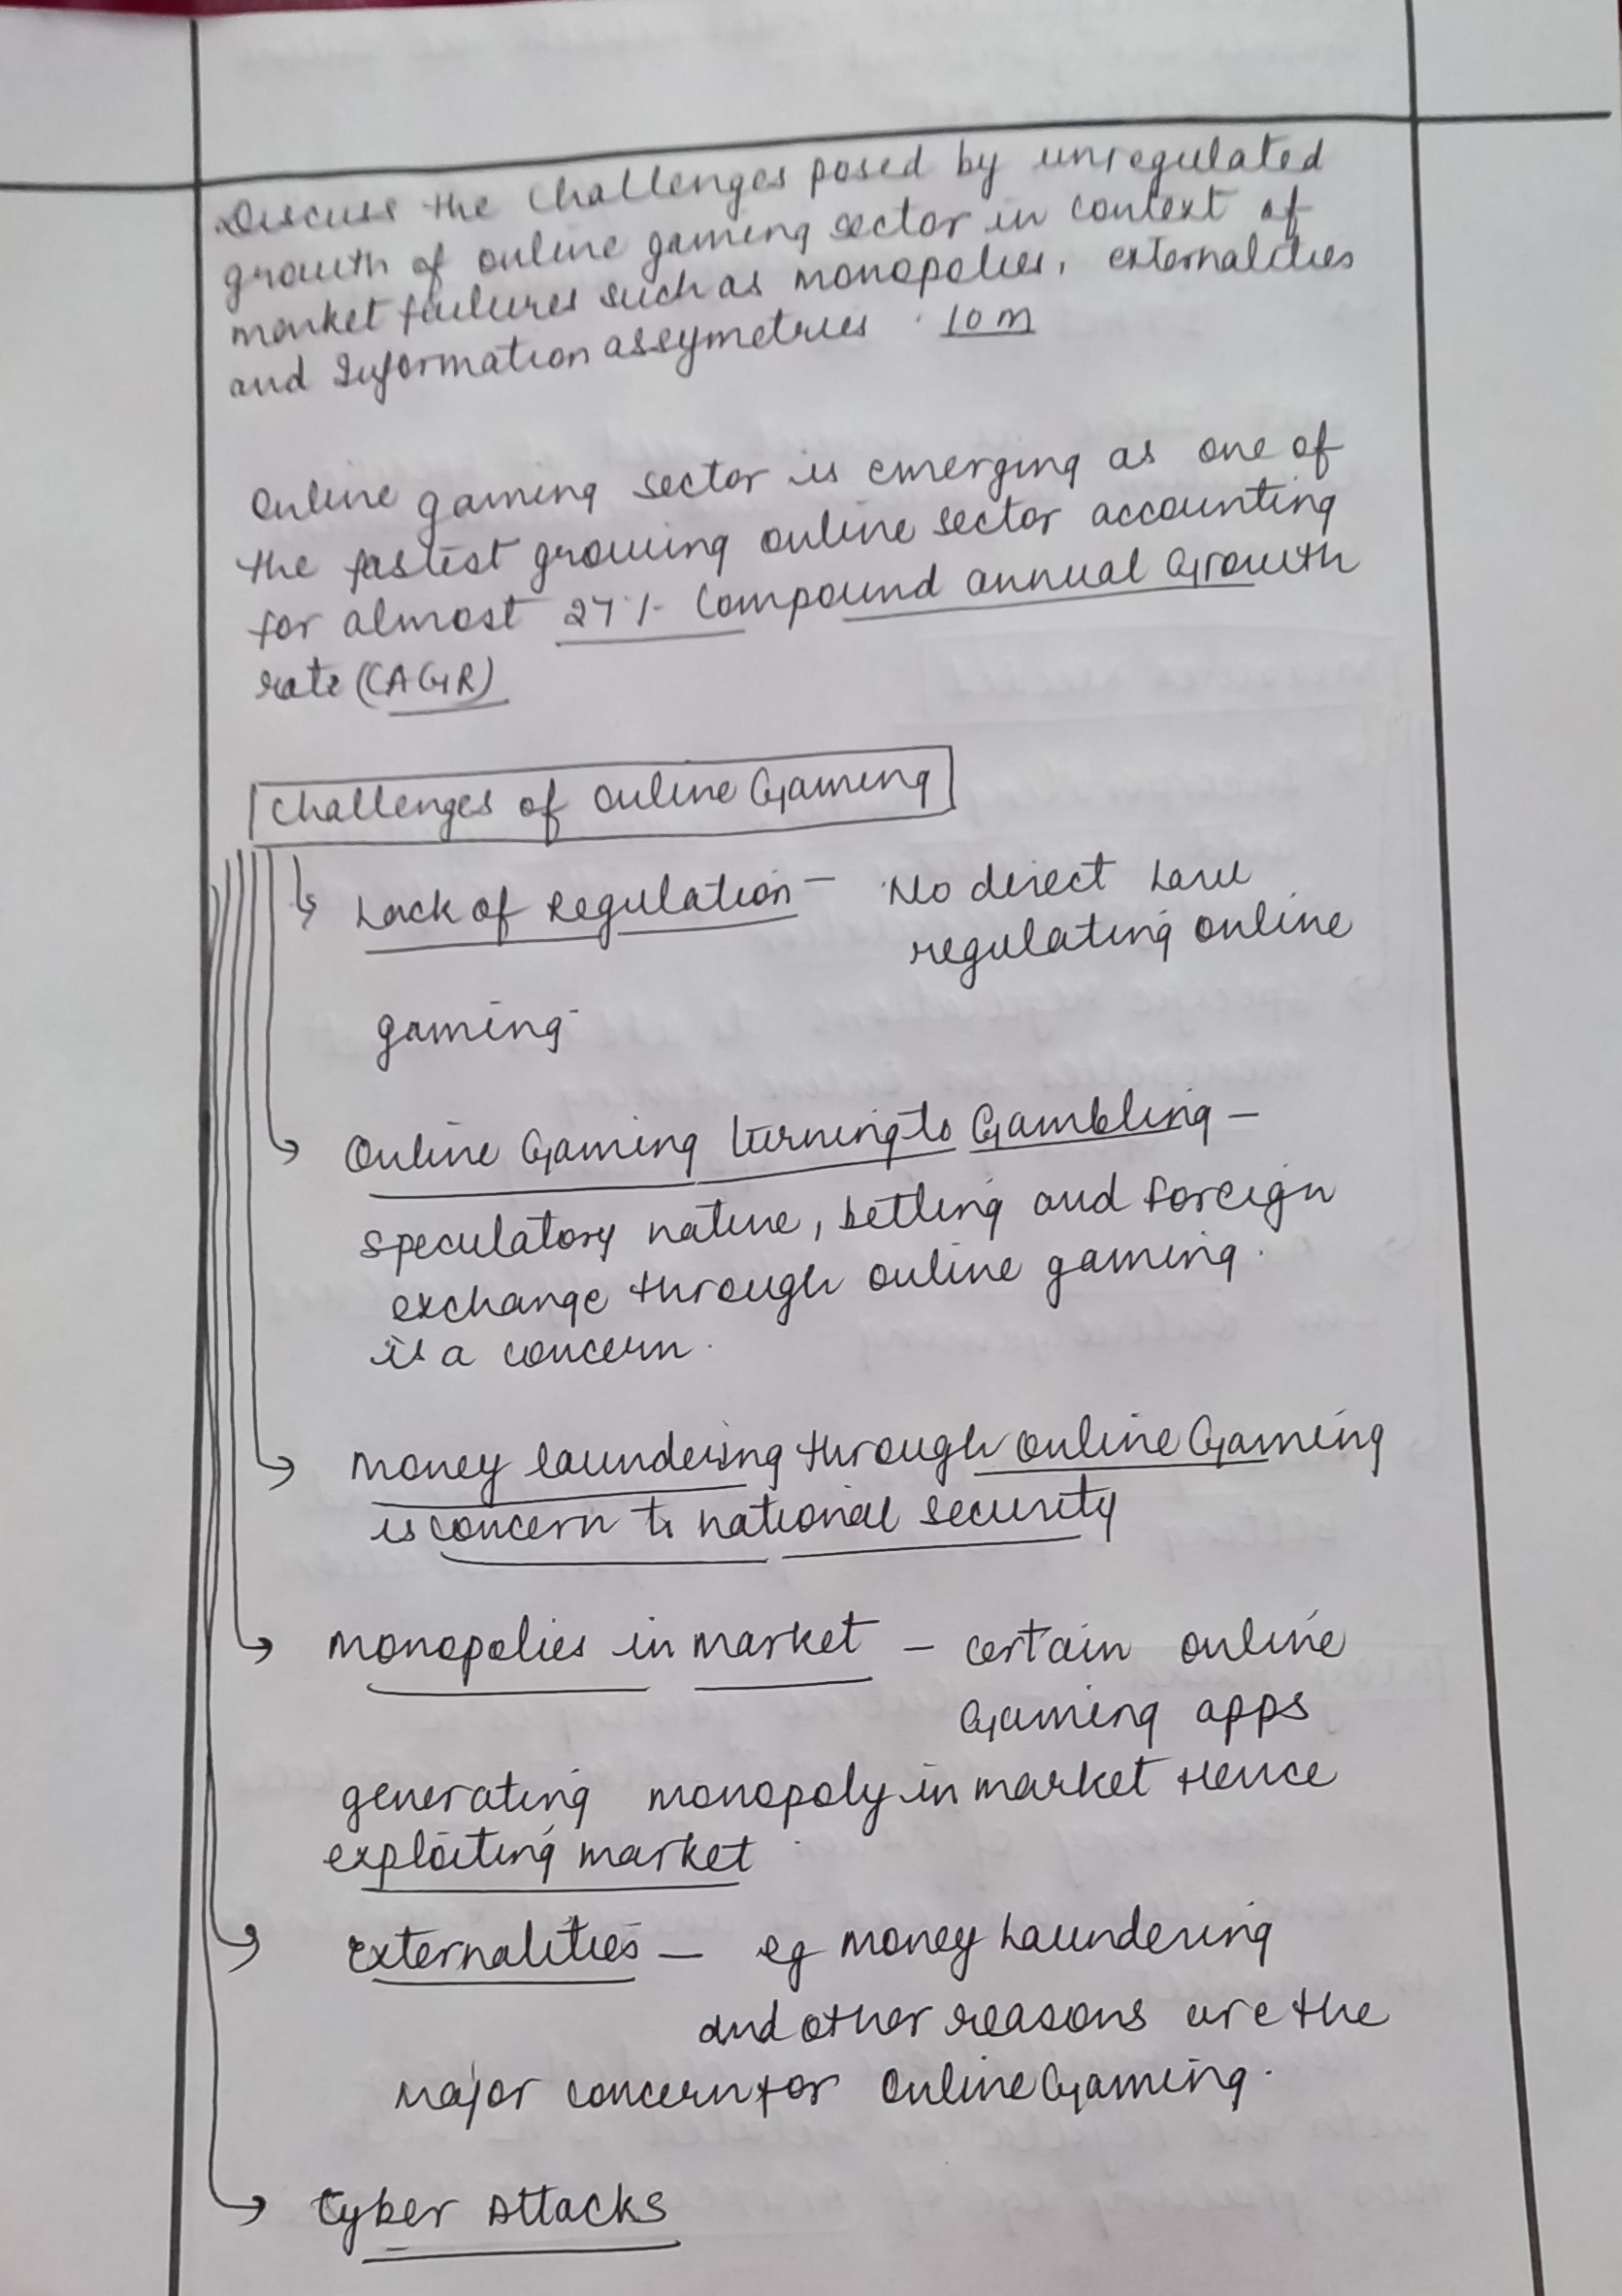 Discuss the challenges posed by unregulated
growth of online gaming sector in context of
market failures such as monopolies, externalities
and Information assymetries. 10 m
Online gaming sector is emerging as one of
the fastest growing online sector accounting
for almost 27% Compound annual Growth
rate (CAGR)
Challenges of Online Gaming
Lack of Regulation - No direct Law
regulating online
gaming
Online Gaming turning to Gambling -
speculatory nature, betting and foreign
exchange through online gaming.
is a concern.
Money laundering through online Gaming
is concern to national security
Monopolies in market - certain online
Gaming apps
generating monopoly in market Hence
exploiting market
Externalities - eg Money Laundering
and other reasons are the
major concern for Online Gaming.
Cyber Attacks